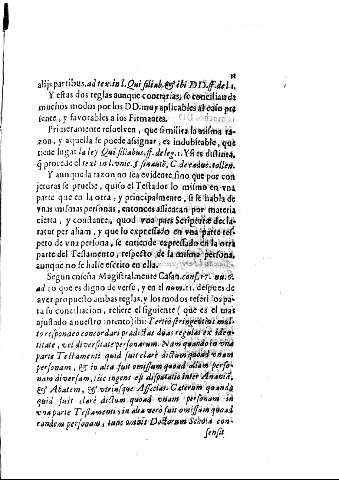 alijs partibus, ad tex. in l. Qui filiab. & ibi DD. ff. de l. 1.
Y estas dos reglas aunque contrarias, se concilian de
muchos modos por los DD. muy aplicables al caso pre
sente, y favorables a los Firmantes.
Primeramente resuelven, que si milita la misma ra-
zon, y aquella se puede assignar, es indubitable, que
tiene lugar la ley Qui filiabus. ff. de leg. 1. Y si es distinta,
q procede el text in l. vnic. § sin autẽ, C. de caduc. tollen.
Y aunque la razon no sea evidente, sino que por con
jeturas se pruebe, quiso el Testador lo mismo en vna
parte que en la otra, y principalmente, si se habla de
vnas mismas personas, entonces assientan por materia
cierta, y constante, quod vna pars Scripturæ decla-
ratur per aliam, y que lo expressado en vna parte res-
peto de vna persona, se entiende expressado en la otra
parte del Testamento, respeto de la misma persona,
aunque no se halle escrito en ella.
Segun enseña Magistralmente Casan. cons. 17. nu. 6.
ad 10 que es digno de verse, y en el num. 11. despues de
aver propuesto ambas reglas, y los modos referidos pa-
ra su conciliacion, refiere el siguiente (que es el mas
ajustado a nuestro intento) ibi: Tertiò stringentiùs mul-
tò respondeo concordari prædictas duas regulas ex iden-
titate, vel diversitate personarum. Nam quando in vna
parte Testamenti quid fuit clarè dictum quoad vnam
personam, & in alia fuit omissum quoad aliam perso-
nam diversam, hic ingens est disputatio inter Ananiã,
& Abatem, & utriusque Assectas. Cæterum quando
quid fuit clarè dictum quoad vnam personam in
vna parte Testamenti & in altera verò fuit omissum quoad
eandem personam, tunc omnis Doctorum Schola con-
sensit